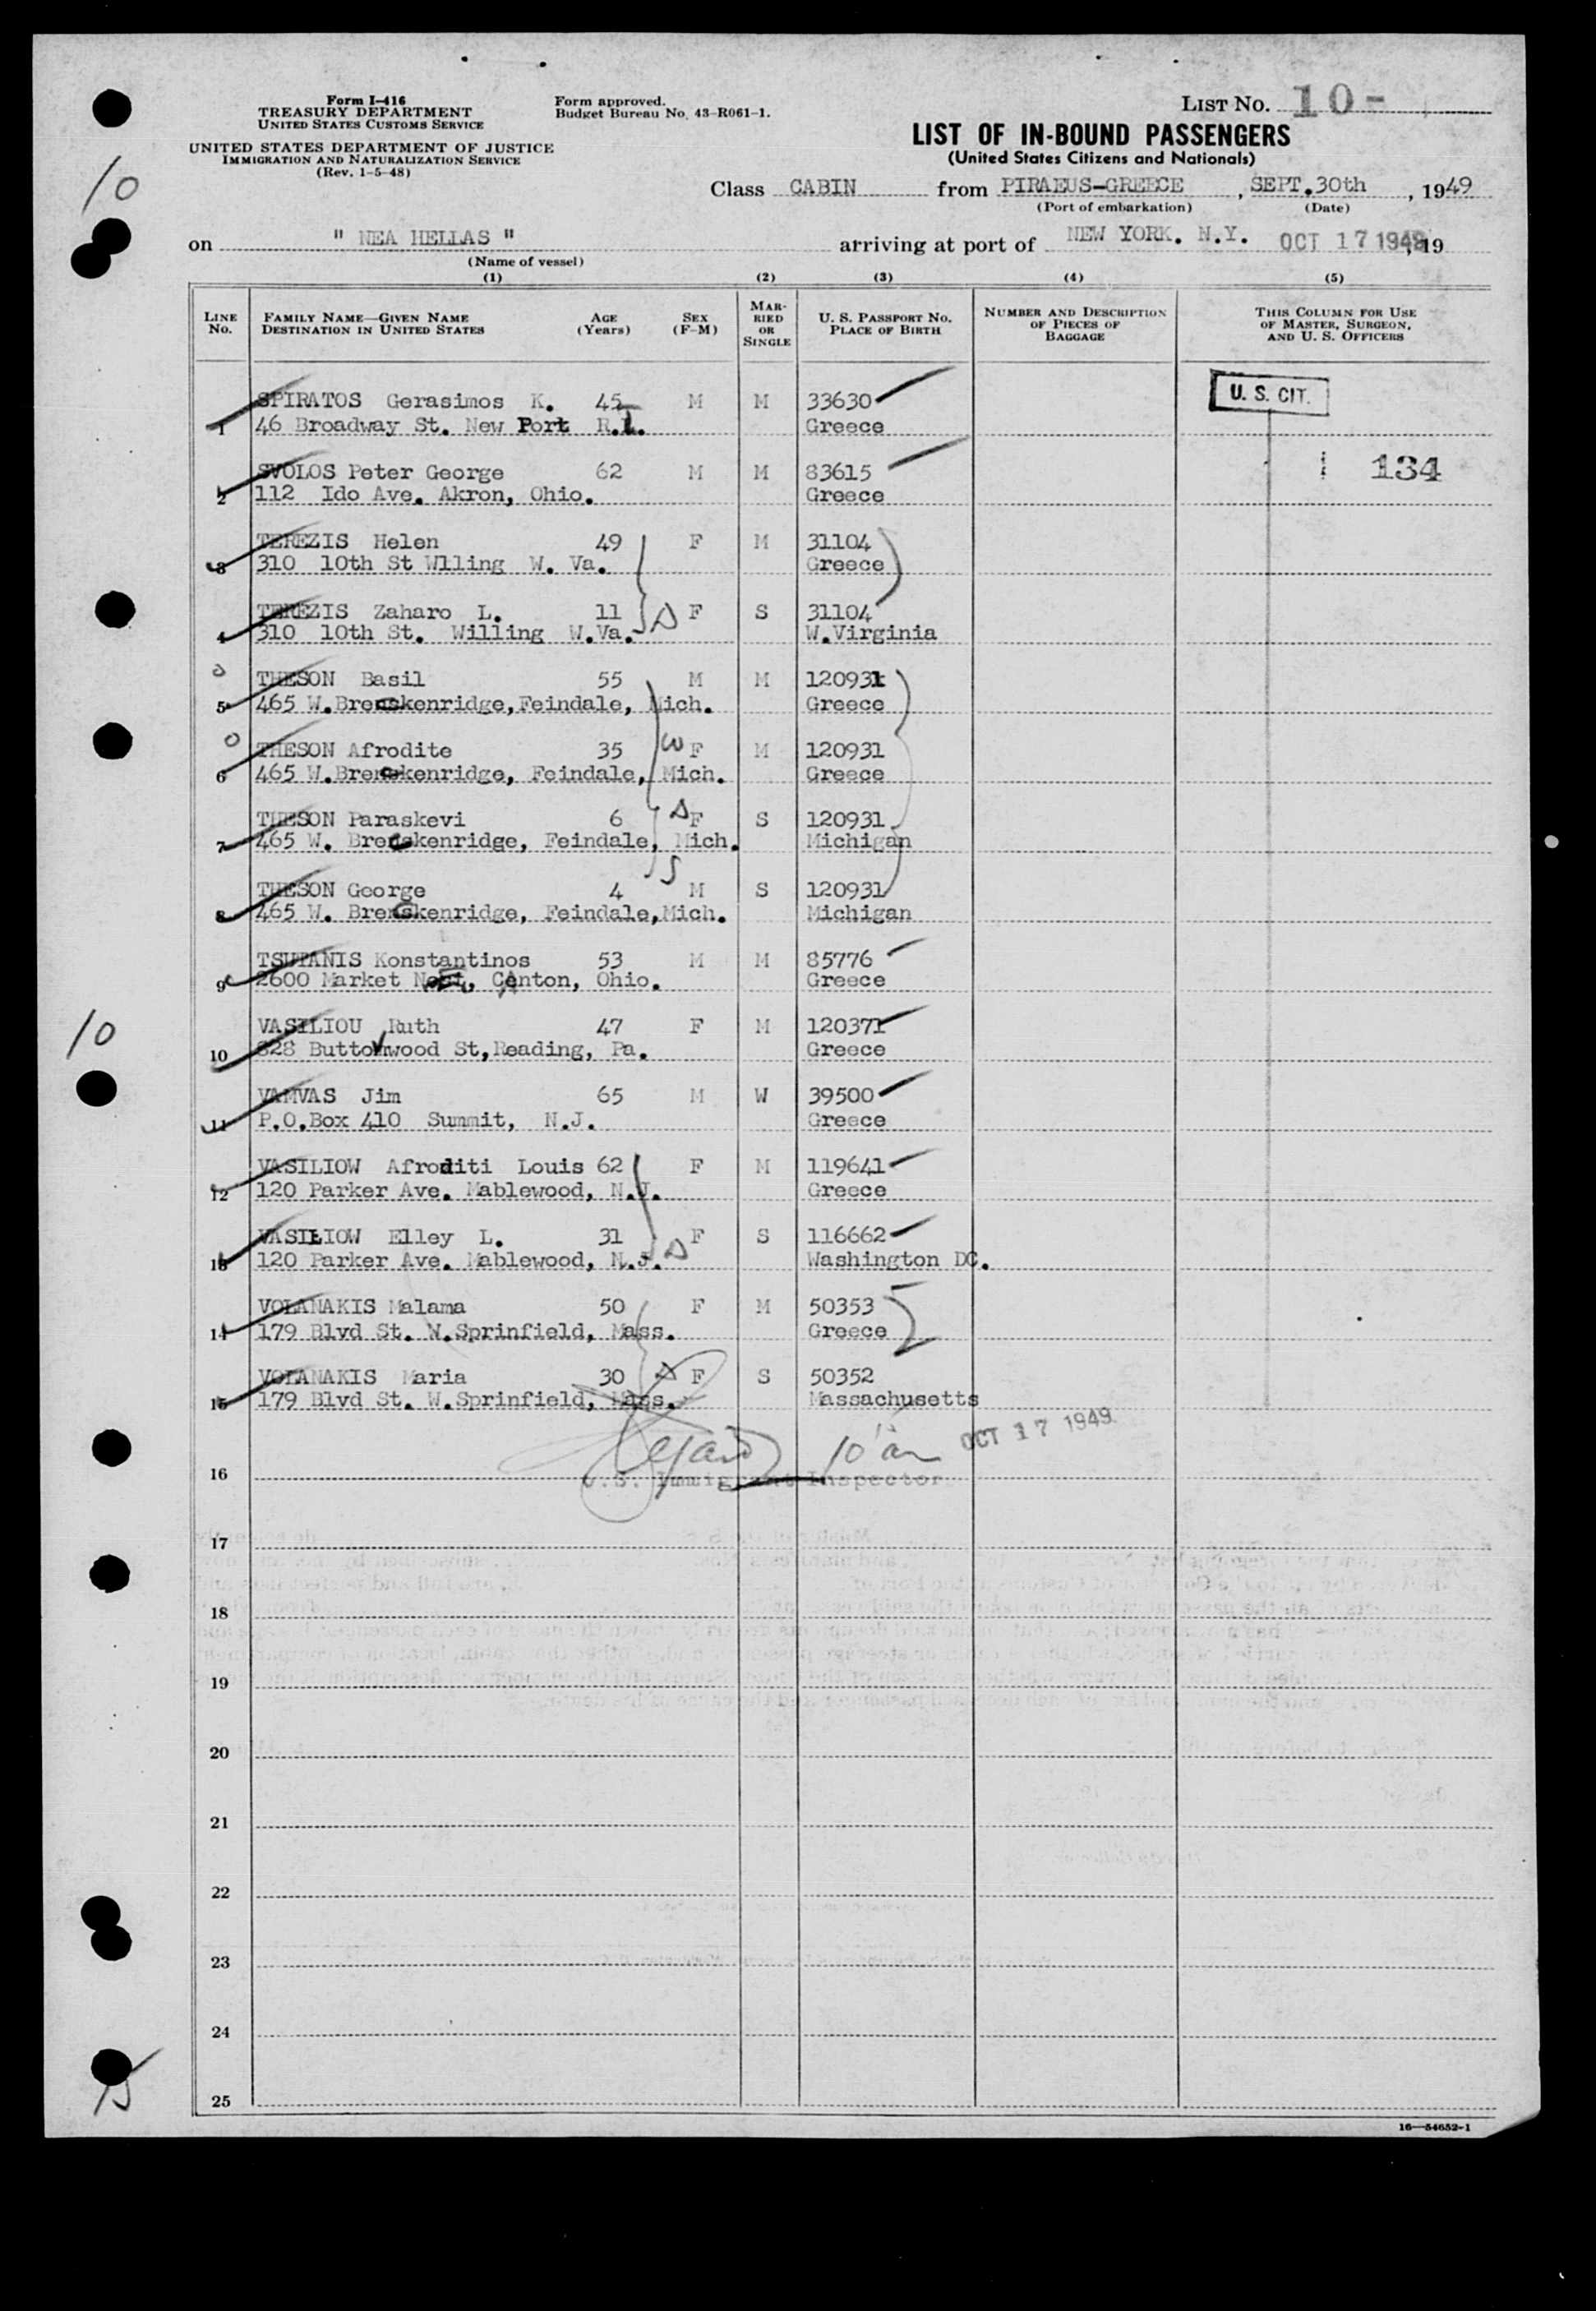 Form I-416
TREASURY DEPARTMENT
UNITED STATES CUSTOMS SERVICE
UNITED STATES DEPARTMENT OF JUSTICE
IMMIGRATION AND NATURALIZATION SERVICE
(Rev. 1-5-48)
Form approved.
Budget Bureau No. 43-R061-1.
LIST NO. 10-
LIST OF IN-BOUND PASSENGERS
(United States Citizens and Nationals)
10
Class CABIN from PIRAEUS-GREECE, SEPT.30th, 1949
(Port of embarkation) (Date)
on " NEA HELLAS " arriving at port of NEW YORK. N.Y. OCT 17 1949, 19
(Name of vessel)
(1) (2) (3) (4) (5)
LINE NO. FAMILY NAME—GIVEN NAME DESTINATION IN UNITED STATES AGE (Years) SEX (F-M) MARRIED OR SINGLE U. S. PASSPORT NO. PLACE OF BIRTH NUMBER AND DESCRIPTION OF PIECES OF BAGGAGE THIS COLUMN FOR USE OF MASTER, SURGEON, AND U. S. OFFICERS
SPIRATOS Gerasimos K. 45 M M 33630 U. S. CIT.
1 46 Broadway St. New Port R.I. Greece
SVOLOS Peter George 62 M M 83615 134
2 112 Ido Ave. Akron, Ohio. Greece
TEREZIS Helen 49 F M 31104
3 310 10th St Wlling W. Va. Greece
TEREZIS Zaharo L. 11 F S 31104
4 310 10th St. Willing W.Va. W.Virginia
THESON Basil 55 M M 120931
5 465 W.Breckenridge,Feindale, Mich. Greece
THESON Afrodite 35 W F M 120931
6 465 W.Breckenridge, Feindale, Mich. Greece
THESON Paraskevi 6 F S 120931
7 465 W. Breckenridge, Feindale, Mich. Michigan
THESON George 4 S M S 120931
8 465 W. Breckenridge, Feindale,Mich. Michigan
TSUTANIS Konstantinos 53 M M 85776
9 2600 Market , Canton, Ohio. Greece
VASILIOU Ruth 47 F M 120371
10 828 Buttonwood St,Reading, Pa. Greece
10
VAMVAS Jim 65 M W 39500
11 P.O.Box 410 Summit, N.J. Greece
VASILIOW Afroditi Louis 62 F M 119641
12 120 Parker Ave. Mablewood, N.J. Greece
VASILIOW Elley L. 31 F S 116662
13 120 Parker Ave. Mablewood, N.J. Washington DC.
VOLANAKIS Malama 50 F M 50353
14 179 Blvd St. W.Sprinfield, Mass. Greece
VOLANAKIS Maria 30 F S 50352
15 179 Blvd St. W.Sprinfield, Mass. Massachusetts
10 am OCT 17 1949
16 U.S. Immigrant Inspector
17
18
19
20
21
22
23
24
25
15
16—54652-1